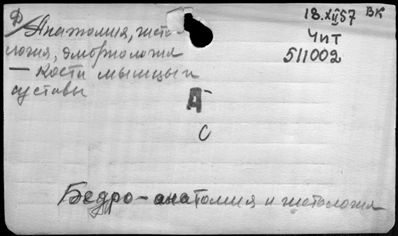 Ф/ Анатомия, гисто-
логия, эмбриология
— Кости мышцы и
суставы
18.XII57 ВК
Чит
511002
А-
С
Бедро - анатомия и гистология